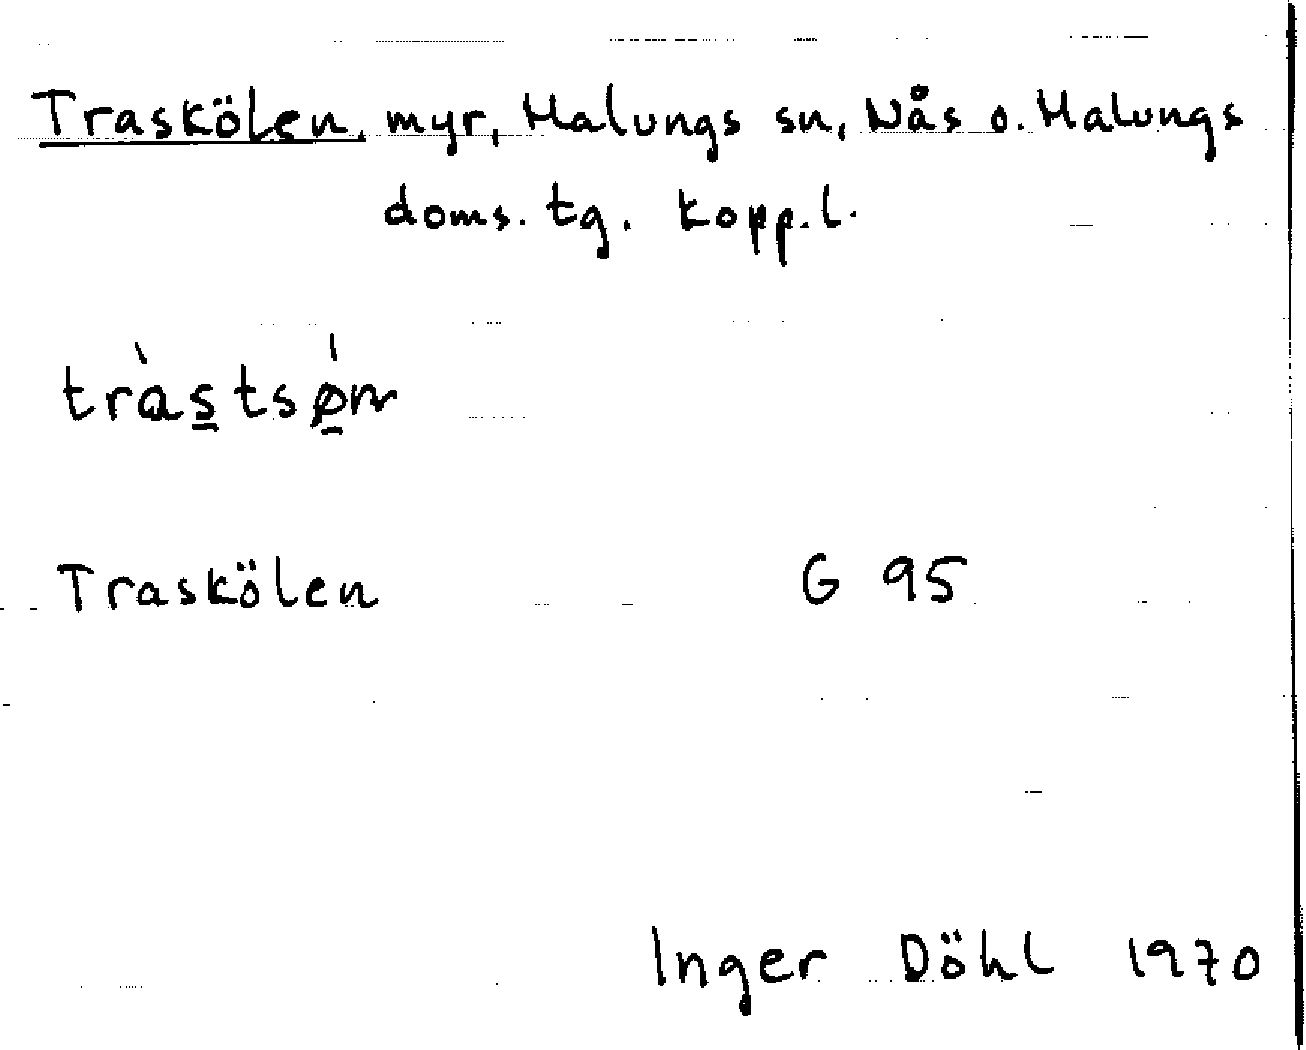 Traskölen, myr, Malungs sn, Nås o. Malungs
doms. tg. Kopp.l.
Traskölen G 95
Inger Döhl 1970